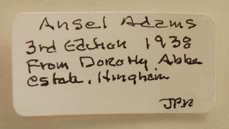 Ansel Adams
3rd Edition 1938
From Dorothy Abbe
estate, Hingham
JPR